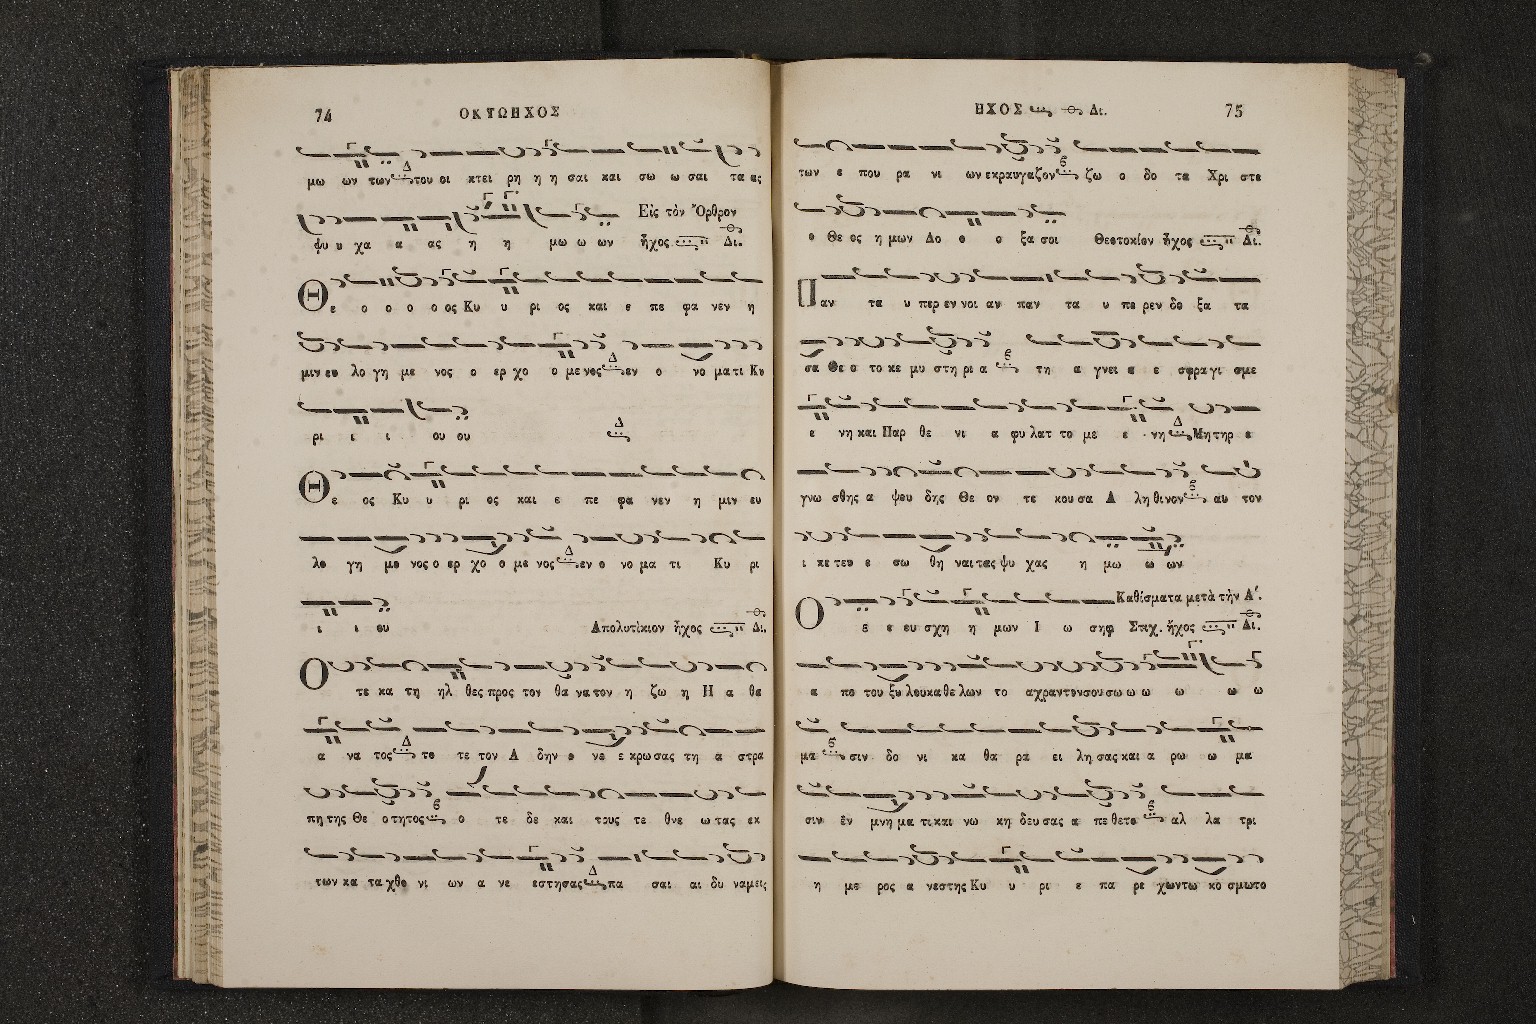 74 ΟΚΤΩΗΧΟΣ
μω ων των του οι κτει ρη η η σαι και σω ω σαι τα ας
Εἰς τὸν Ὄρθρον
ψυ υ χα α ας η η μω ω ων ἦχος Δι.
Θε ο ο ο ο ος Κυ υ ρι ος και ε πε φα νεν η
μιν ευ λο γη με νος ο ερ χο ο με νος εν ο νο μα τι Κυ
ρι ι ι ου ου
Θε ος Κυ υ ρι ος και ε πε φα νεν η μιν ευ
λο γη με νος ο ερ χο ο με νος εν ο νο μα τι Κυ ρι
ι ι ου Απολυτίκιον ἦχος Δι.
Ο τε κα τη ηλ θες προς τον θα να τον η ζω η Η α θα
α να τος το τε τον Α δην ε νε ε κρω σας τη α στρα
πη της Θε ο τητος ο τε δε και τους τε θνε ω τας εκ
των κα τα χθο νι ων α νε εστησας πα σαι αι δυ ναμεις
ΗΧΟΣ Δι. 75
των ε που ρα νι ων εκραυγαζον ζω ο δο τα Χρι στε
ο Θε ος η μων Δο ο ο ξα σοι Θεοτοκίον ἦχος Δι.
Παν τα υ περ εν νοι αν παν τα υ πε ρεν δο ξα τα
σα Θε ο το κε μυ στη ρι α τη α γνει α ε σφρα γι σμε
ε νη και Παρ θε νι α φυ λατ το με ε νη Μη τηρ ε
γνω σθης α ψευ δης Θε ον τε κου σα Α λη θινον αυ τον
ι κε τευ ε σω θη ναι τας ψυ χας η μω ω ων
Καθίσματα μετὰ τὴν Α΄.
Ο ε ε ευ σχη η μων Ι ω σηφ Στιχ. ἦχος Δι.
α πο του ξυ λου κα θε λων το αχραντονσου σω ω ω ω ω ω
μα σιν δο νι κα θα ρα ει λη σας και α ρω ω μα
σιν ἐν μνη μα τι και νω κη δευ σας α πε θετο αλ λα τρι
η με ρος α νεστης Κυ υ ρι ε πα ρε χωντω κο σμωτο